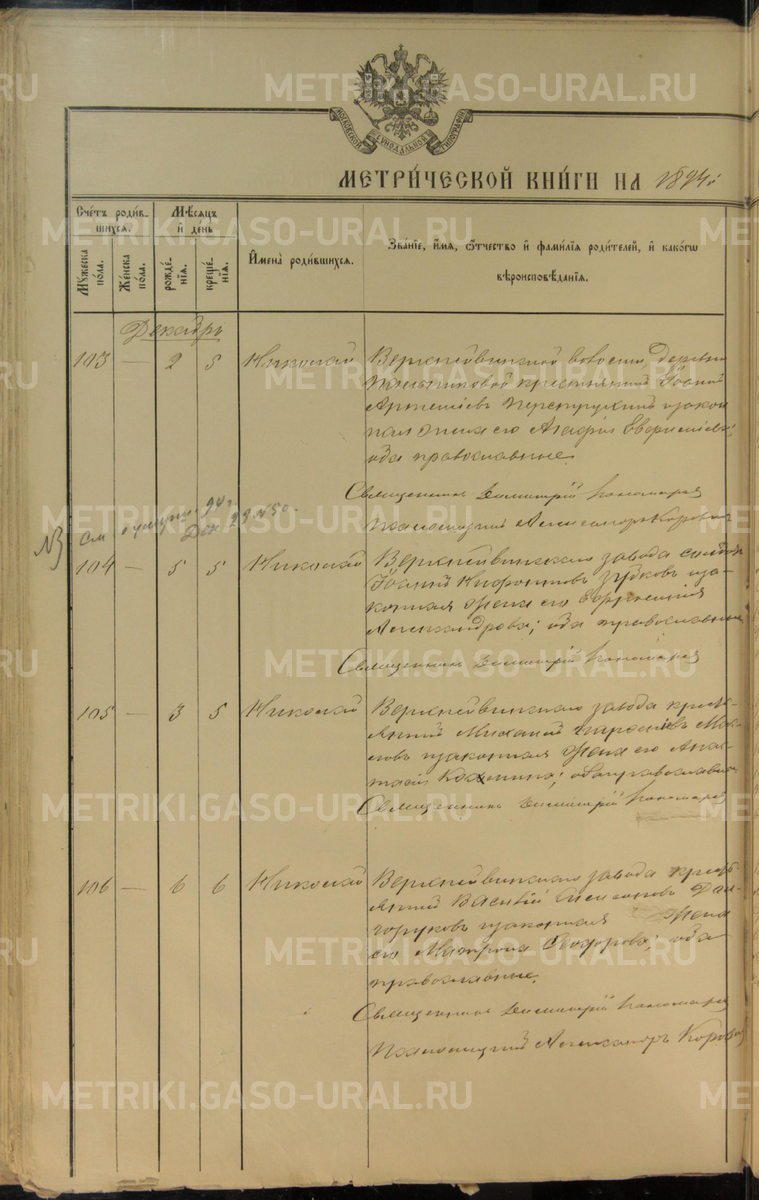 МОСКОВСКОЙ СѴНОДАЛЬНОЙ ТИПОГРАФІИ
МЕТРИ́ЧЕСКОЙ КНИ́ГИ НА 1894 г
Сче́тъ роди́в-
шихся.
Мѣ́сяцъ
и де́нь
Му́жеска
по́ла.
Же́нска
по́ла.
рожде́-
нія.
креще́-
нія.
Имена̀ роди́вшихся.
Зва́ніе, и́мя, ѻ҆́тчество и фами́лія роди́телей, и како́гѡ
вѣроисповѣ́данія.
Декабрь
103 — 2 5 Николай Верхнейвинской волости Деревни
крестьянинъ Іоаннъ
Артемьевъ и закон
ная жена его Агафія
оба православные.
Священникъ Димитрій Пономарев
Псаломщикъ Александръ Коровин
№3 см. о умерш. 94 г.
Дек 29 №50.
104 — 5 5 Николай Верхнейвинскаго завода
Іоаннъ Никоновъ и за-
конная жена его
Александрова; оба православные
Священникъ Димитрій Пономарев
105 — 3 5 Николай Верхнейвинскаго завода кресть-
янинъ Михаилъ
и законная жена его Анас-
тасія Козмина; оба православные
Священникъ Димитрій Пономарев
106 — 6 6 Николай Верхнейвинскаго завода кресть-
янинъ Василій Дал-
горуковъ и законная жена
его Матрона Ѳеодорова; оба
православные.
Священникъ Димитрій Пономарев
Псаломщикъ Александръ Коровин
METRIKI.GASO-URAL.RU